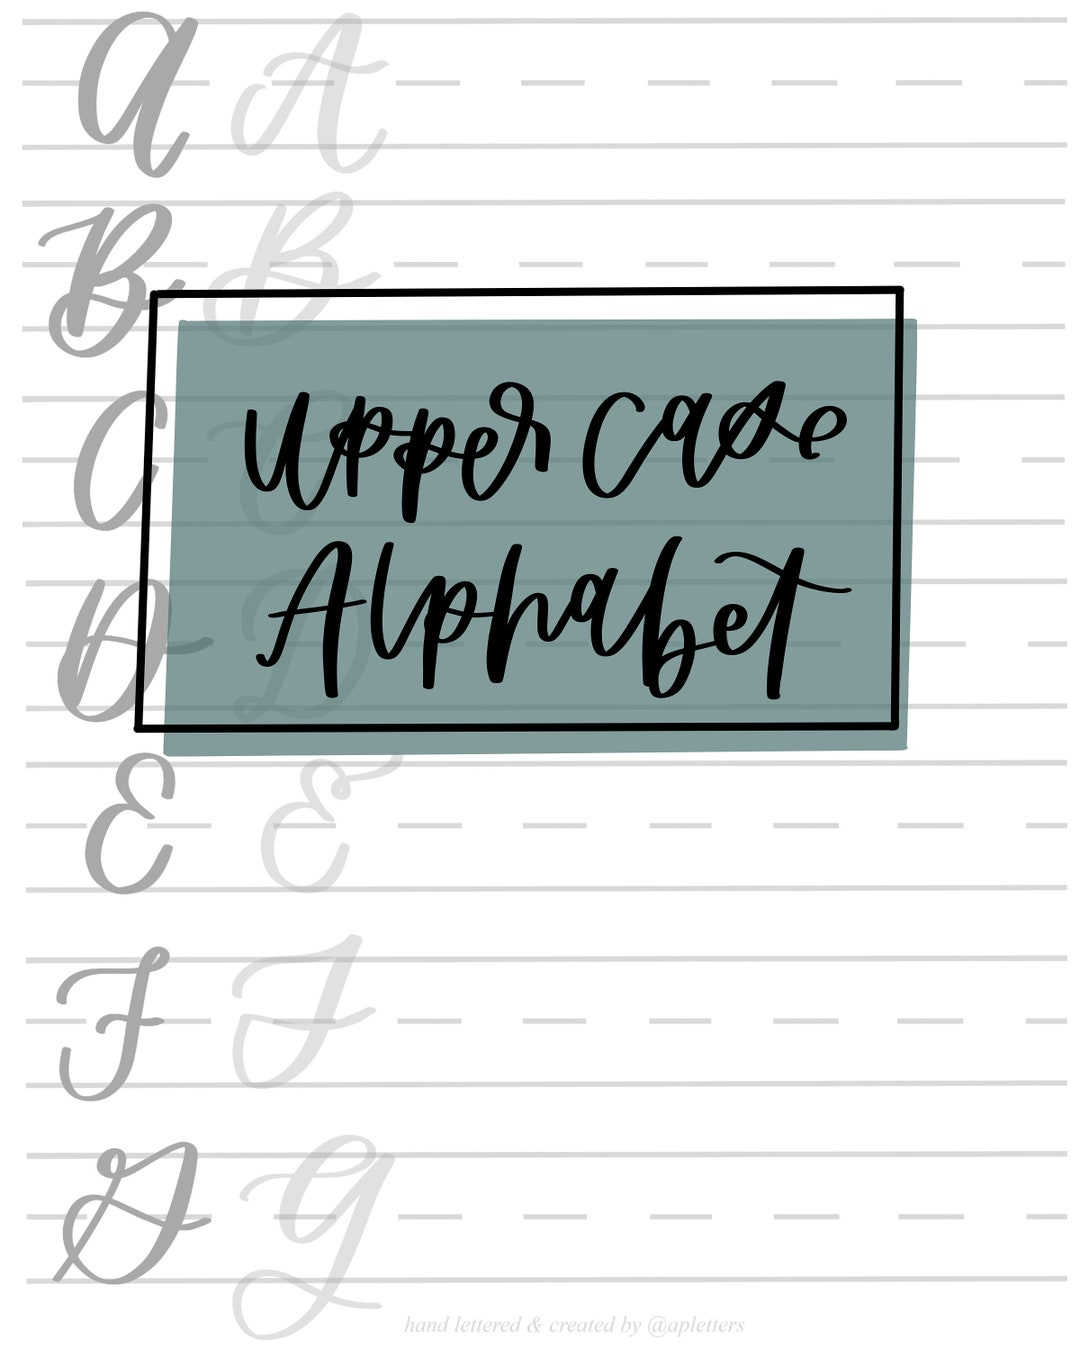 A A
B B
C C
Upper case
D D
Alphabet
E E
F F
G G
hand lettered & created by @apletters